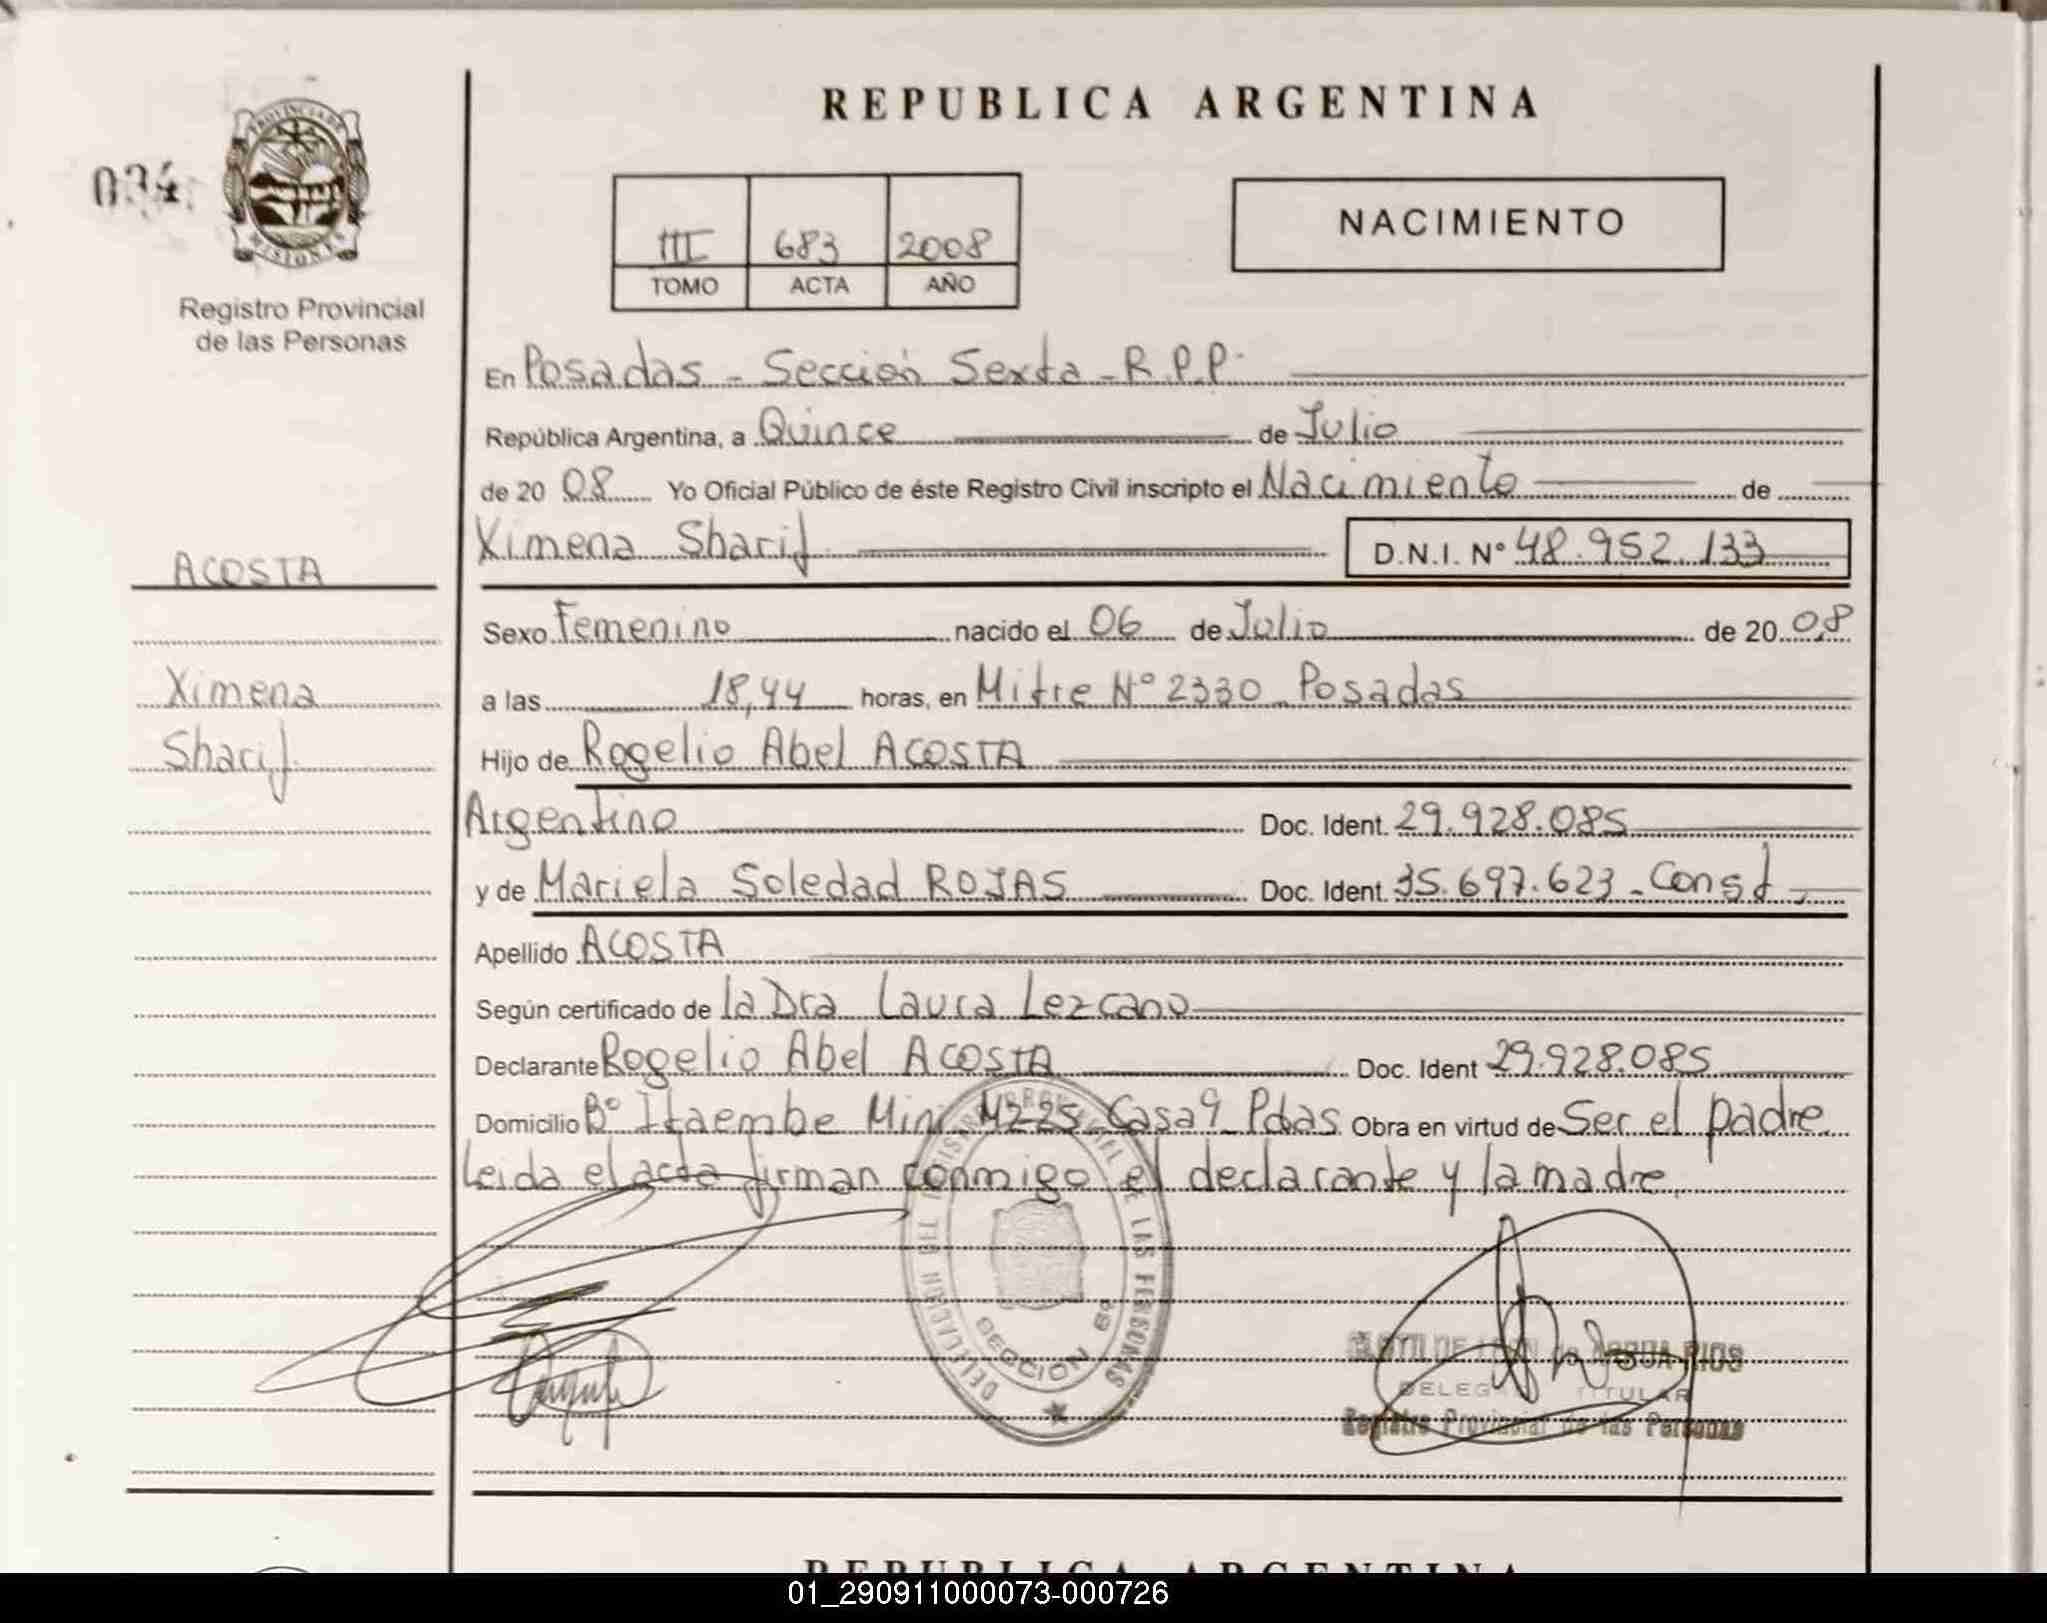 REPUBLICA ARGENTINA
034
PROVINCIA DE
MISIONES
Registro Provincial
de las Personas
III 683 2008
TOMO ACTA AÑO
NACIMIENTO
En Posadas - Sección Sexta - R.P.P.
República Argentina, a Quince de Julio
de 20 08 Yo Oficial Público de éste Registro Civil inscripto el Nacimiento de
Ximena Sharif D.N.I. Nº 48.952.133
ACOSTA
Ximena
Sharif
Sexo Femenino nacido el 06 de Julio de 20 08
a las 18,44 horas, en Mitre Nº 2330 - Posadas
Hijo de Rogelio Abel ACOSTA
Argentino Doc. Ident. 29.928.085
y de Mariela Soledad ROJAS Doc. Ident. 35.697.623 - Const.
Apellido ACOSTA
Según certificado de la Dra Laura Lezcano
Declarante Rogelio Abel ACOSTA Doc. Ident 29.928.085
Domicilio Bº Itaembe Mini Mz 25 Casa 9 Pdas Obra en virtud de Ser el padre
Leida el acta firman conmigo el declarante y la madre.
DELEGACION DEL REGISTRO PROVINCIAL DE LAS PERSONAS
SECCION 6º
TITULAR
Registro Provincial de las Personas
REPUBLICA ARGENTINA
01_290911000073-000726